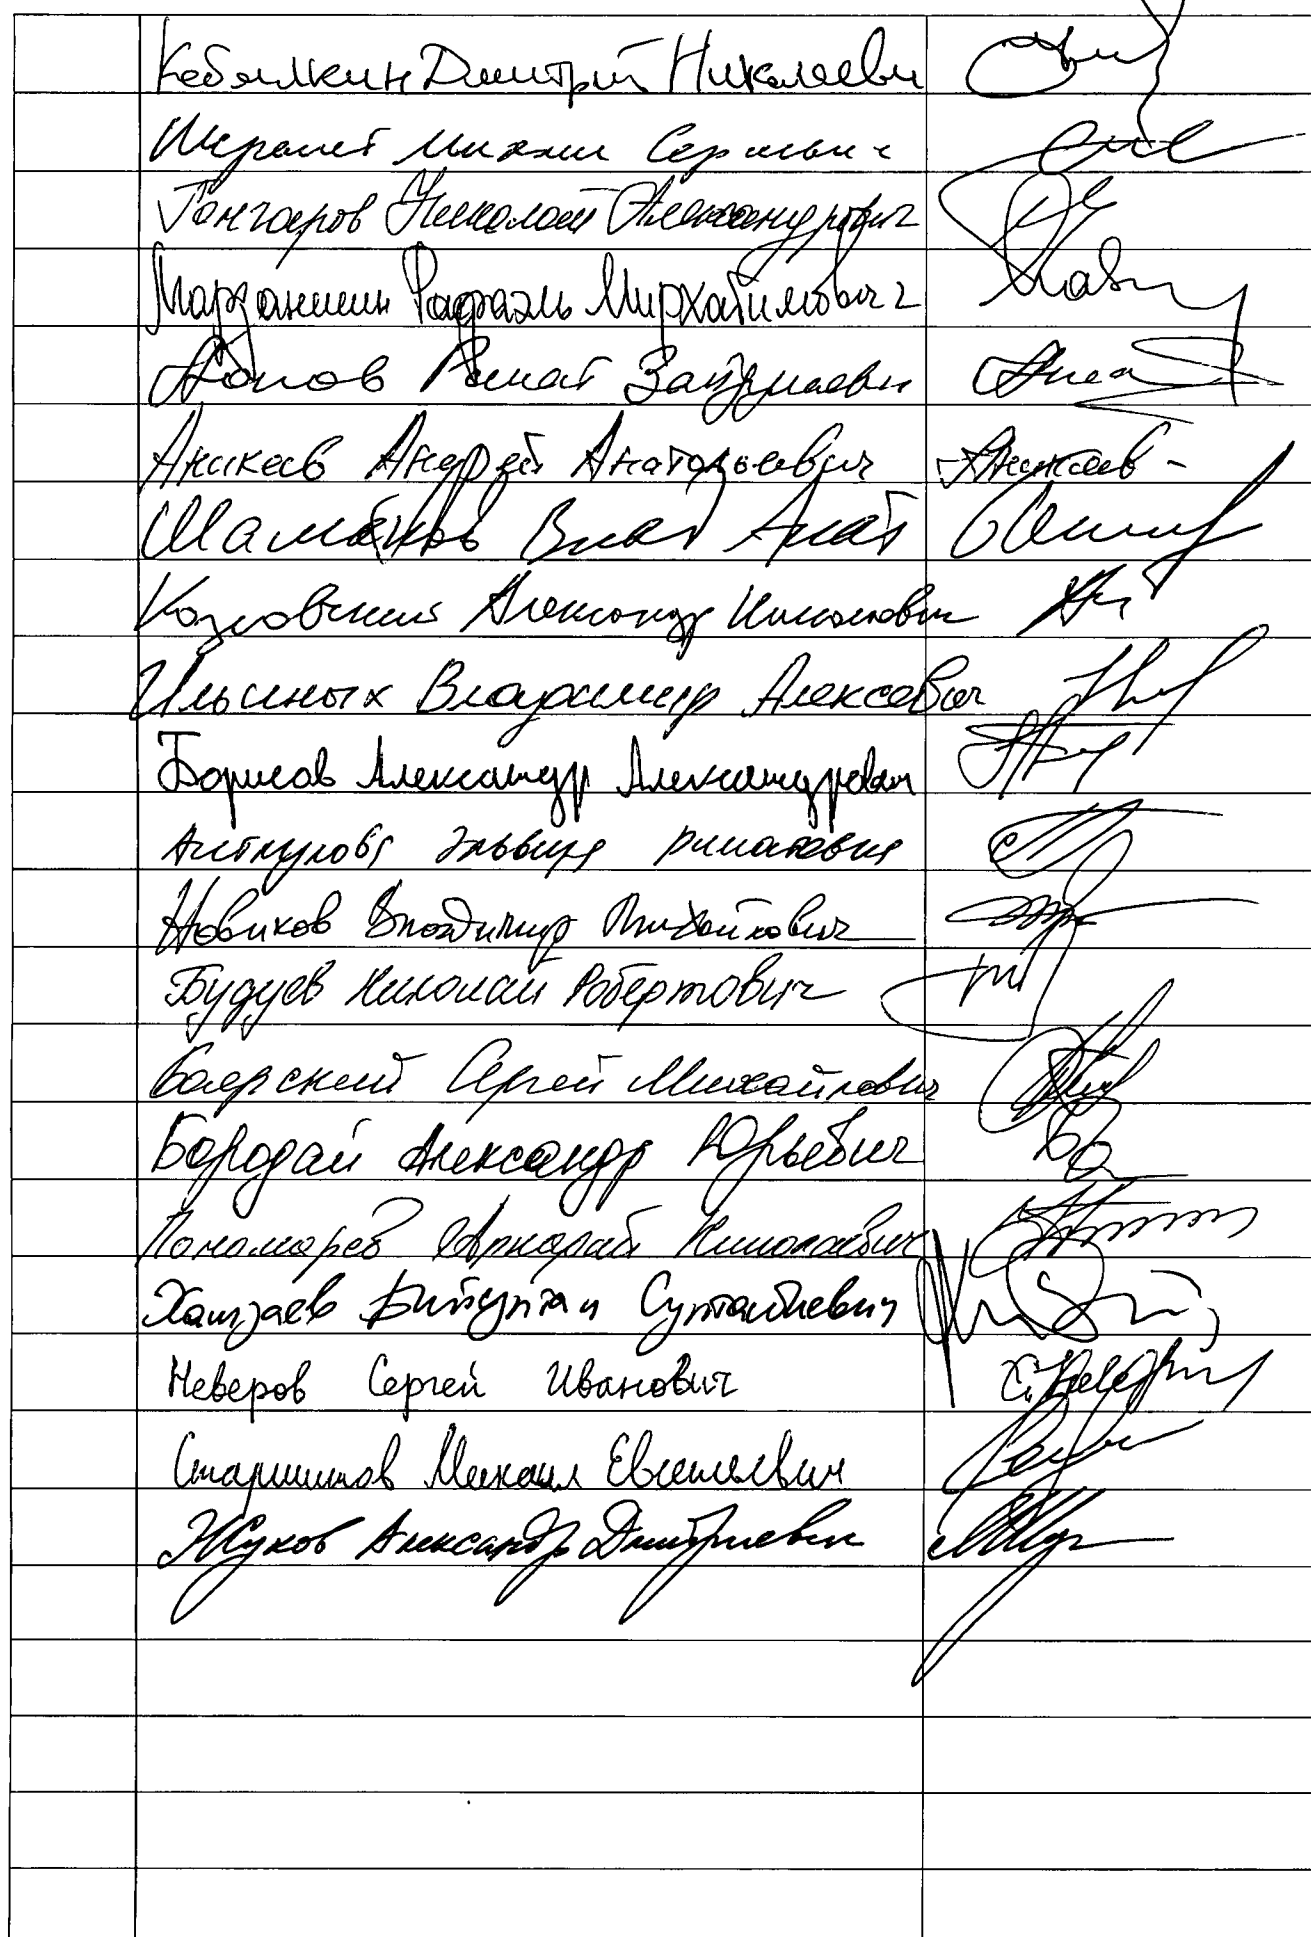 Кобылкин Дмитрий Николаеви
Шеремет Михаил Сергеевич
Гончаров Николай Александрович
Марданшин Рафаэль Мирхатимович
Аюпов Ринат Зайдулаеви
Аникеев Андрей Анатольевич Аникеев
Шаманов Влад Анат
Козловский Александр Николаевич
Ильиных Владимир Алексевич
Борисов Александр Александрович
Аиткулова Эльвира Ринатовна
Новиков Владимир Михайлович
Будуев Николай Робертович
Боярский Сергей Михайлович
Бородай Александр Юрьевич
Пономарев Аркадий Николаевич
Хамзаев Бийсултан Султанбиевич
Неверов Сергей Иванович
Старшинов Михаил Евгеньевич
Жуков Александр Дмитриевич